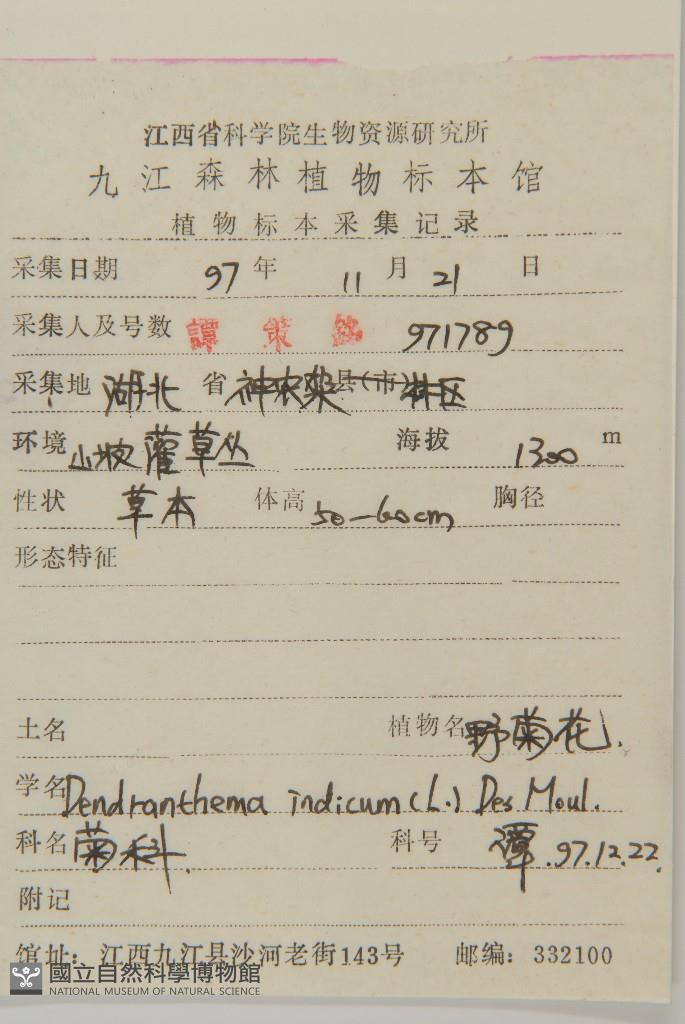 江西省科学院生物资源研究所
九江森林植物标本馆
植物标本采集记录
采集日期 97 年 11 月 21 日
采集人及号数 譚策銘 971789
采集地 湖北 省 神农架县(市)林区
环境 山坡灌草丛 海拔 1300 m
性状 草本 体高 50-60cm 胸径
形态特征
土名 植物名 野菊花.
学名 Dendranthema indicum (L.) Des Moul.
科名 菊科. 科号 谭.97.12.22.
附记
馆址：江西九江县沙河老街143号 邮编：332100
國立自然科學博物館
NATIONAL MUSEUM OF NATURAL SCIENCE